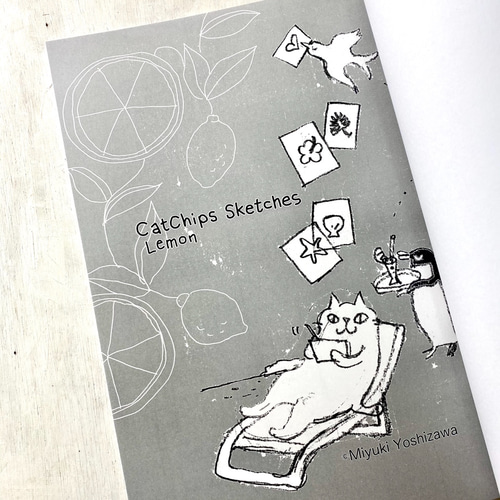 CatChips Sketches
Lemon
©Miyuki Yoshizawa